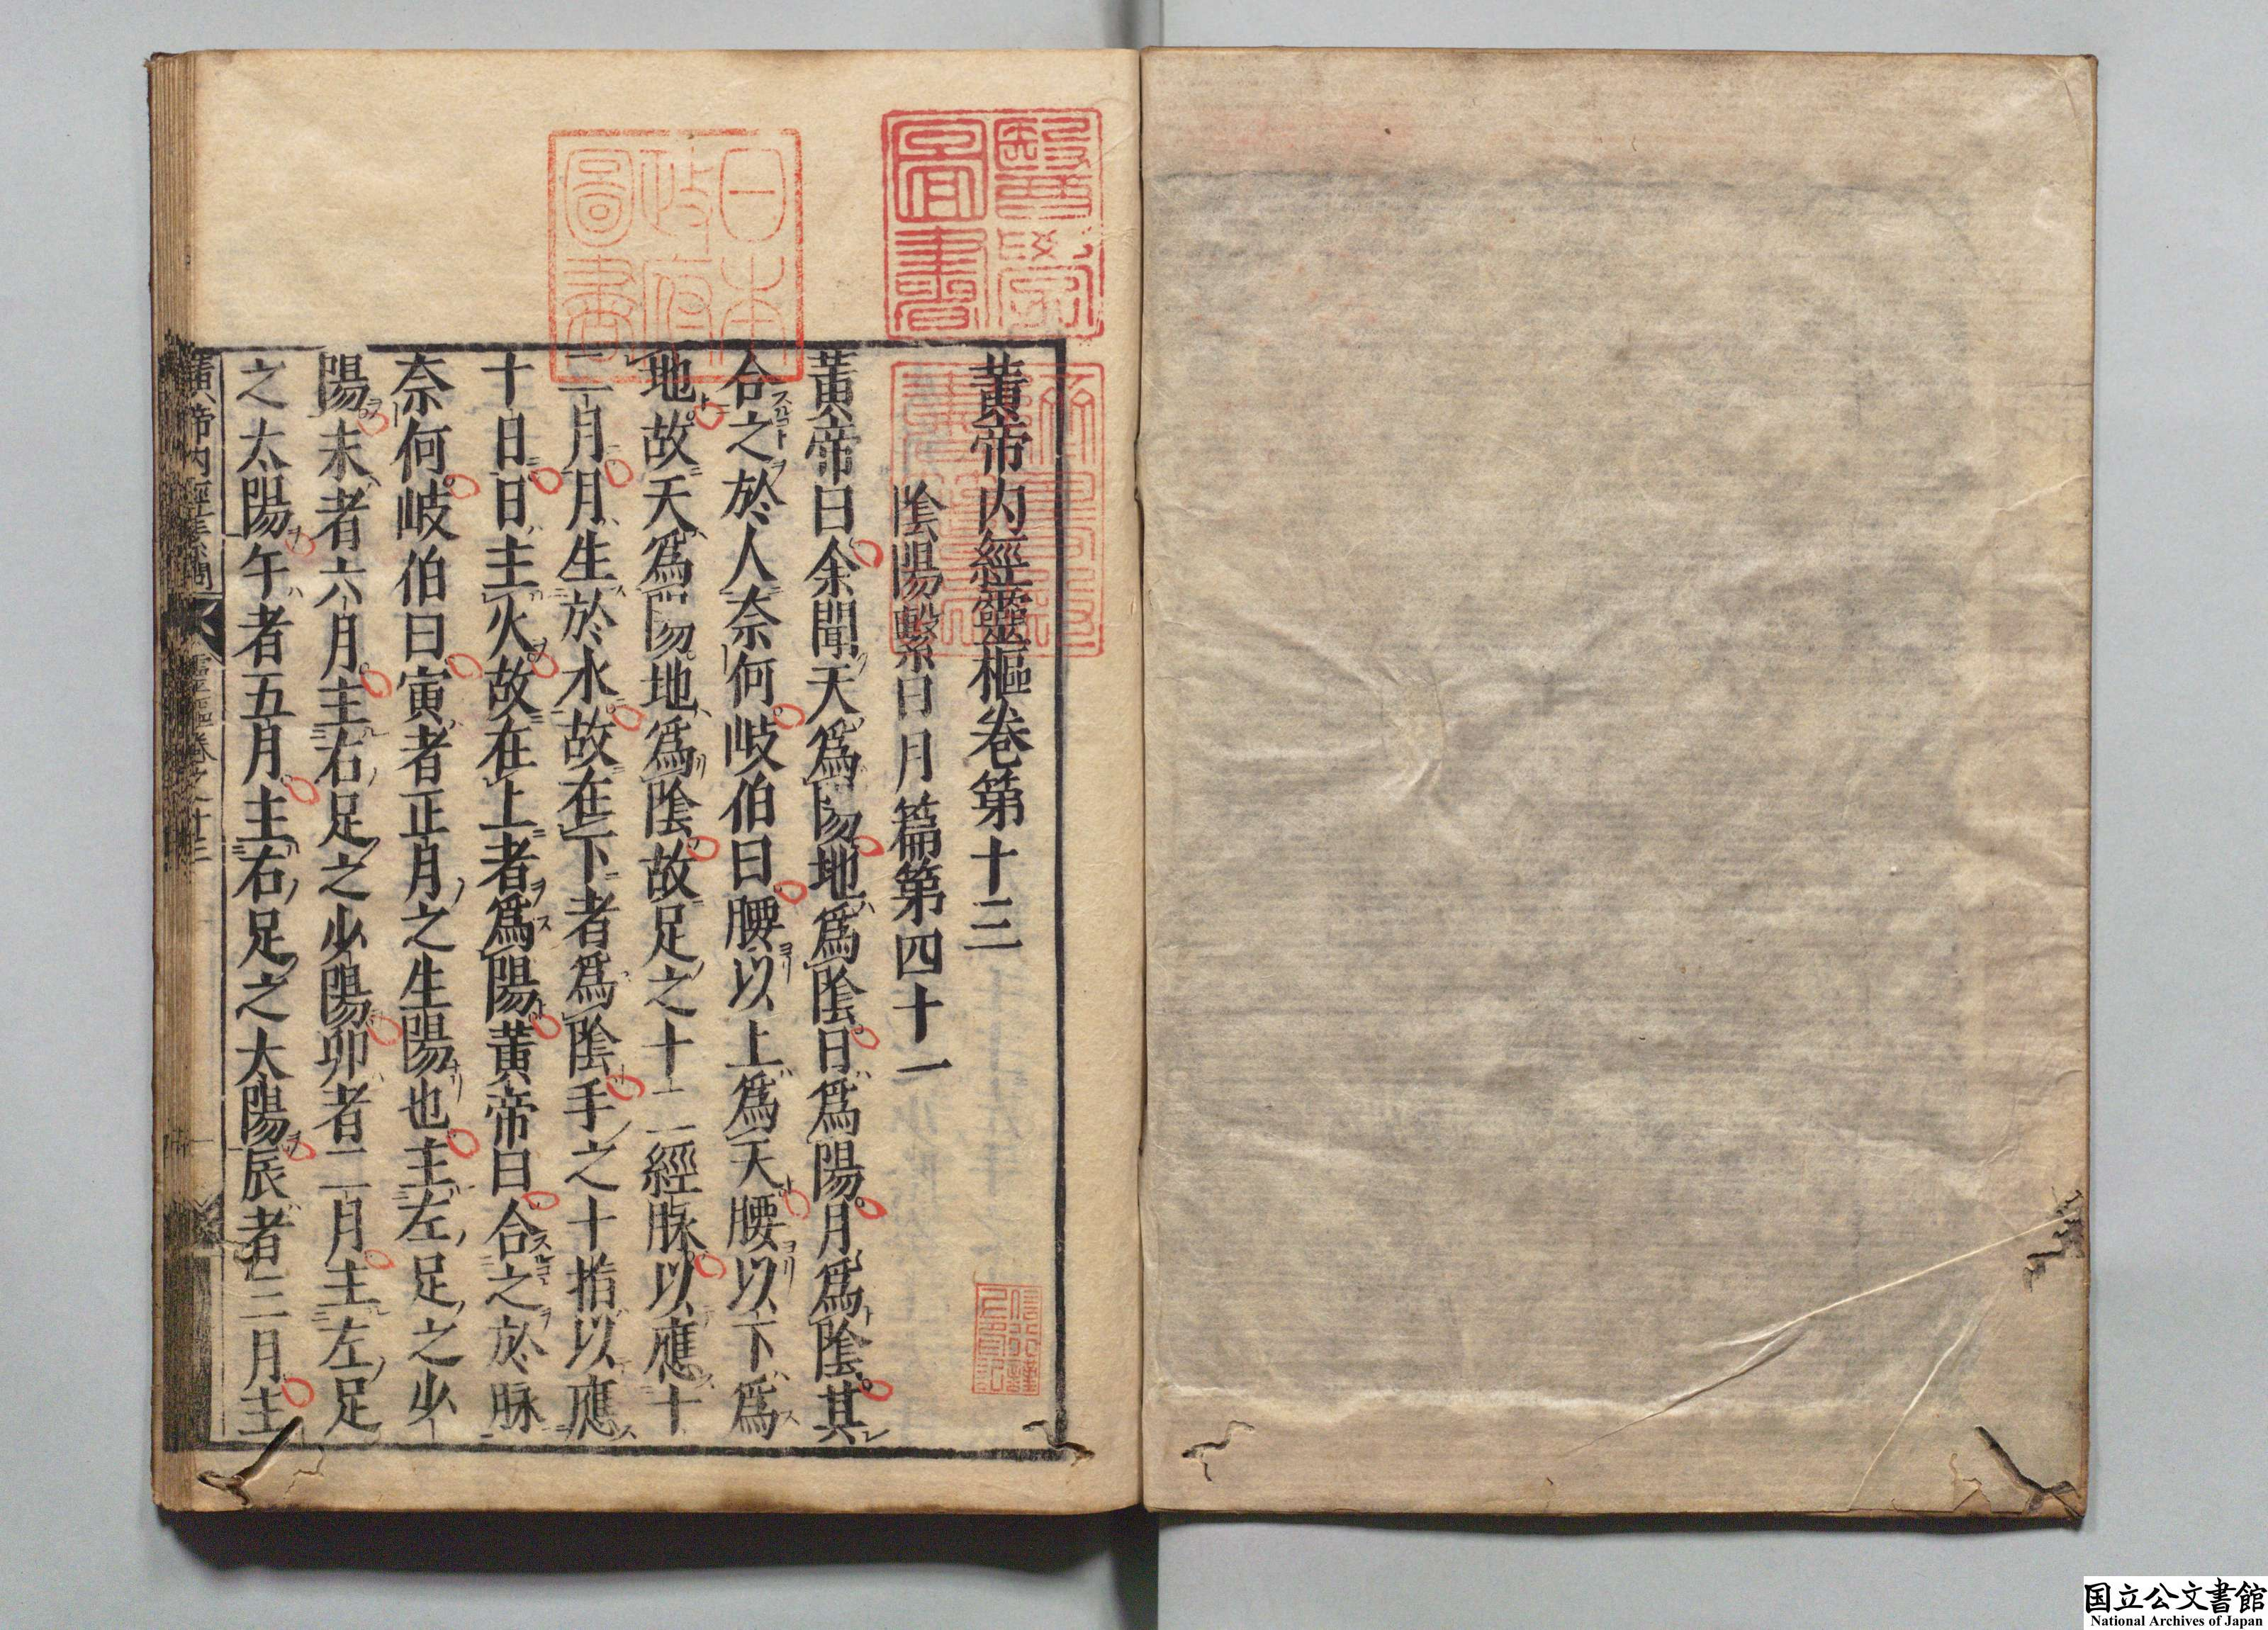 黃帝内經靈樞卷第十三
陰陽繫日月篇第四十一
黃帝曰余聞天爲陽地爲陰日爲陽月爲陰其
合之於人奈何岐伯曰腰以上爲天腰以下爲
地故天爲陽地爲陰故足之十二經脉以應十
二月月生於水故在下者爲陰手之十指以應
十日日主火故在上者爲陽黃帝曰合之於脉
奈何岐伯曰寅者正月之生陽也主左足之少
陽未者六月主右足之少陽卯者二月主左足
之太陽午者五月主右足之太陽辰者三月主
黃帝内經素問 靈樞卷之十三
醫學圖書
日本政府圖書
国立公文書館
National Archives of Japan